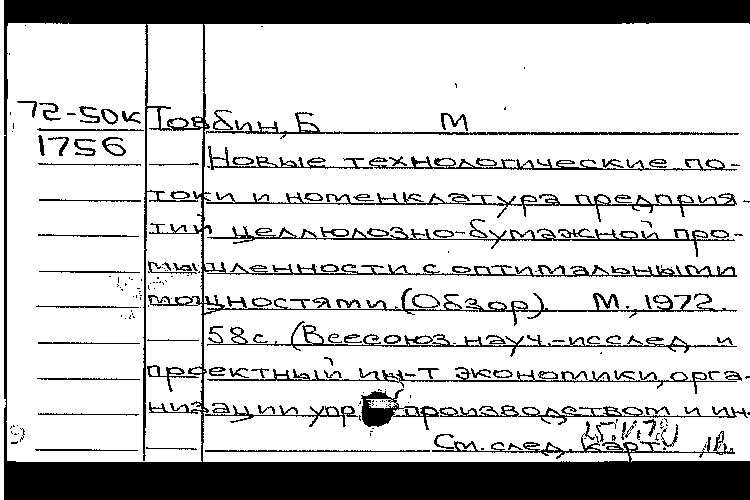 72-50к Товбин, Б М
1756
Новые технологические по-
токи и номенклатура предприя-
тий целлюлозно-бумажной про-
мышленности с оптимальными
мощностями. (Обзор). М., 1972.
58с. (Всесоюз. науч.-исслед. и
проектный ин-т экономики, орга-
низации упр производством и ин-
См. след. карт.